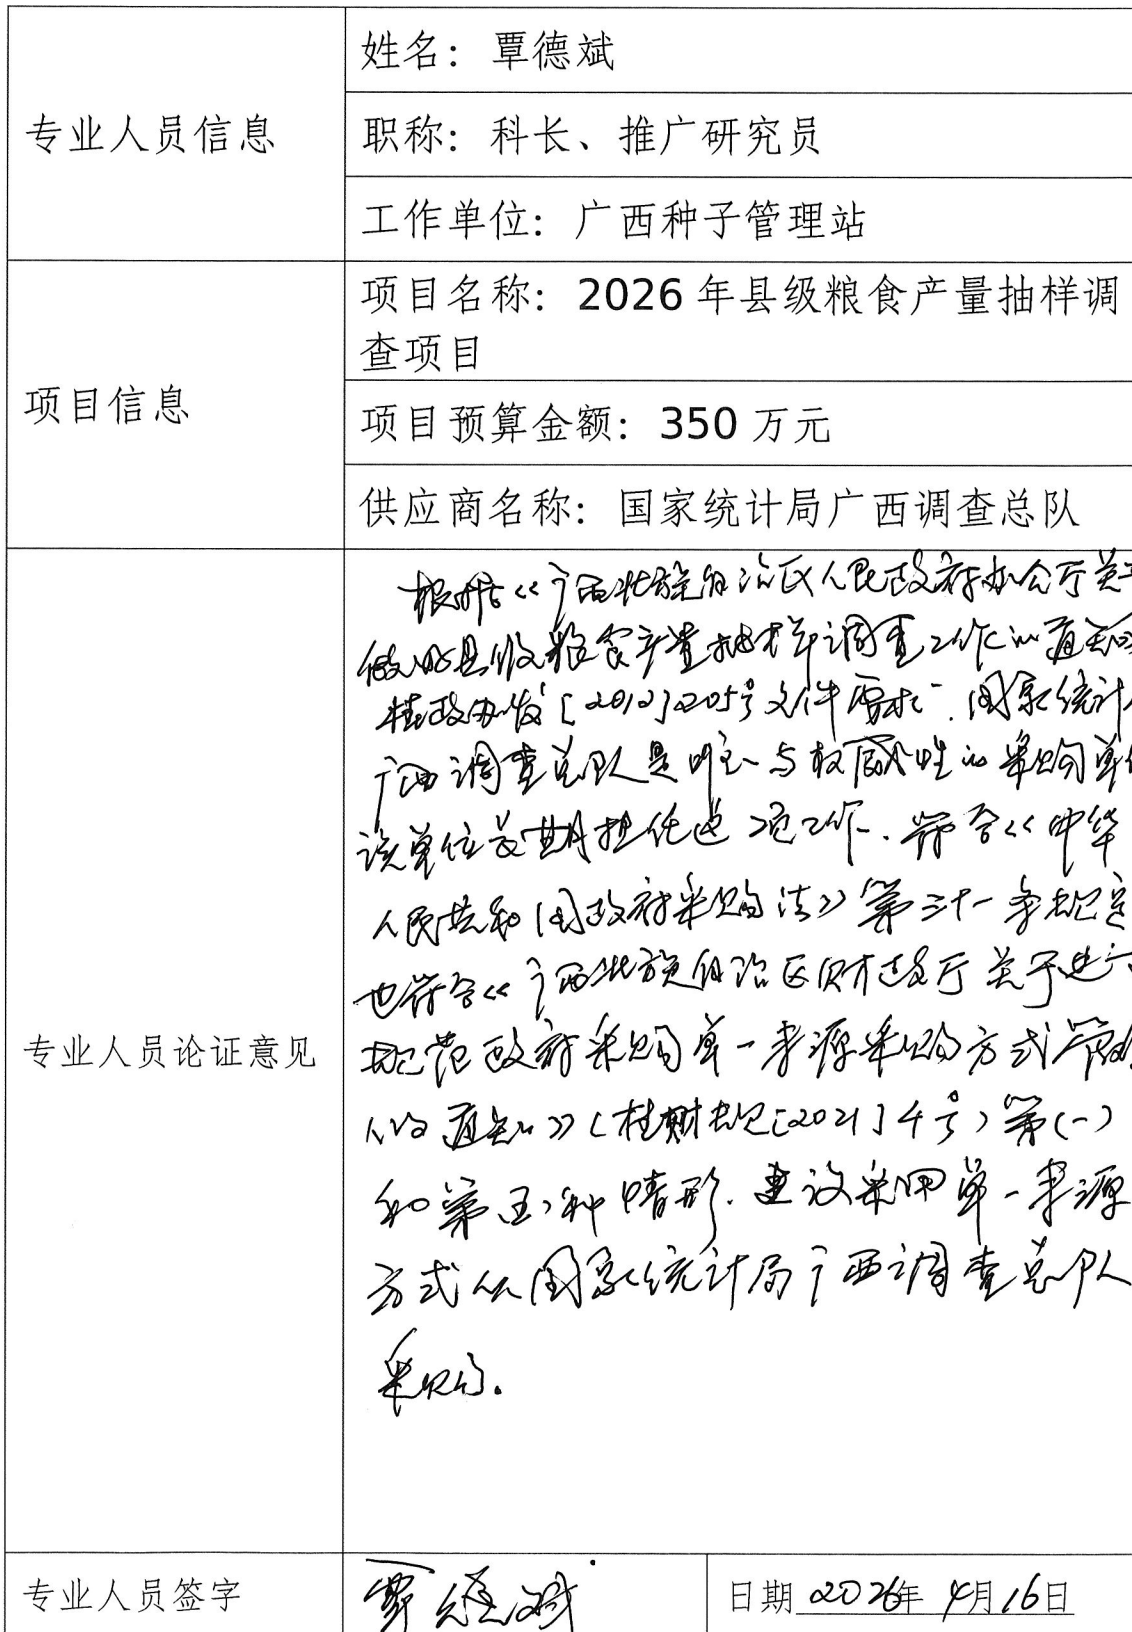 专业人员信息
姓名：覃德斌
职称：科长、推广研究员
工作单位：广西种子管理站
项目信息
项目名称：2026 年县级粮食产量抽样调
查项目
项目预算金额：350 万元
供应商名称：国家统计局广西调查总队
专业人员论证意见
根据《广西壮族自治区人民政府办公厅关于
做好县级粮食产量抽样调查工作的通知
桂政办发[2012]205号文件要求，国家统计局
广西调查总队是唯一与权威性的采购单位
该单位长期担任这项工作，符合《中华
人民共和国政府采购法》第三十一条规定
也符合《广西壮族自治区财政厅关于进一
规范政府采购单一来源采购方式管理
的通知》（桂财规[2021]4号）第(一)
和第五种情形，建议采用单一来源
方式从国家统计局广西调查总队
采购。
专业人员签字
覃德斌
日期 2026年 4月16日